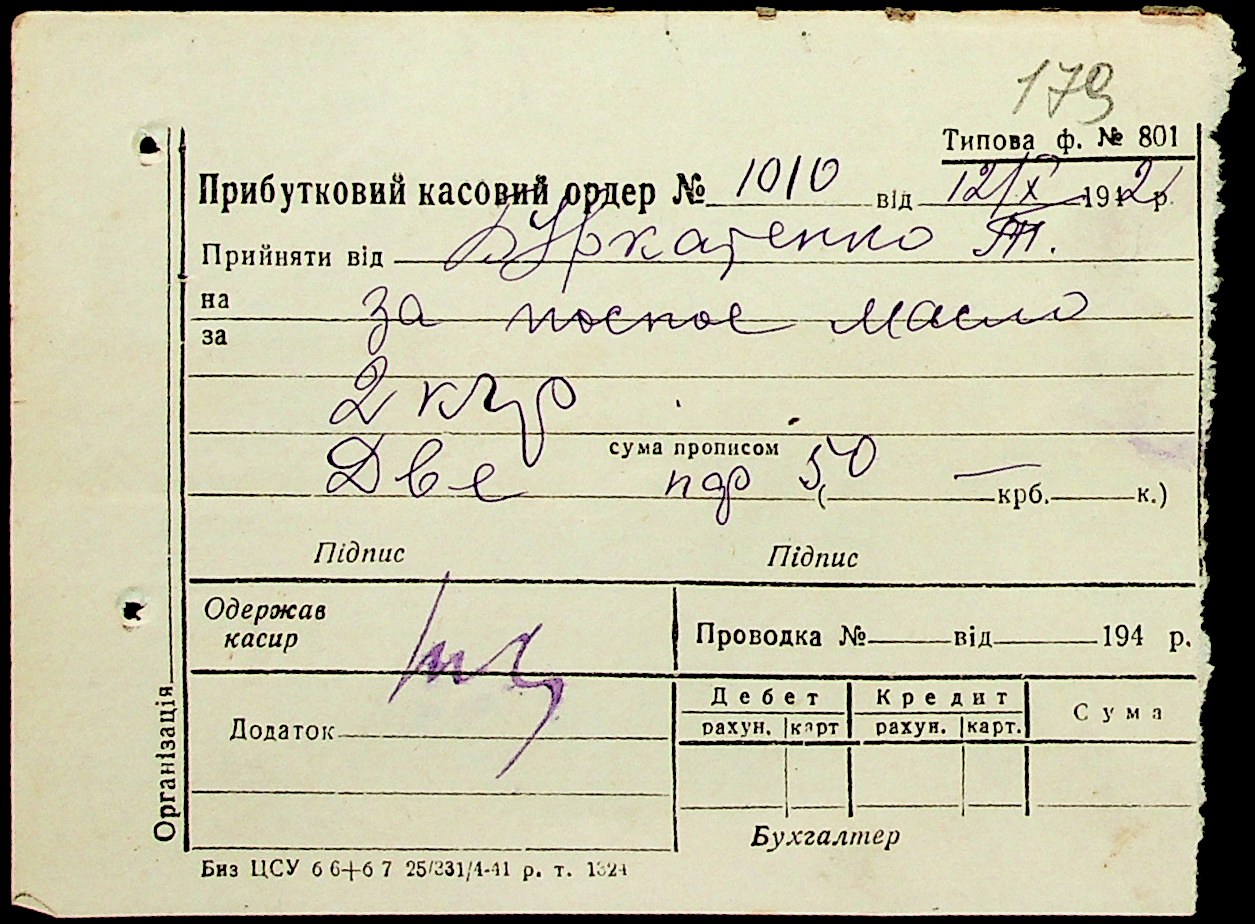 179
Типова ф. № 801
Прибутковий касовий ордер № 1010 від 12/X 1942 р.
Прийняти від Буркатенко Т.
на за посное масло
за
2 кгр
сума прописом
Две 50 ( — крб. к.)
Підпис Підпис
Одержав касир
Проводка № від 194 р.
Дебет Кредит Сума
рахун. карт рахун. карт.
Додаток
Бухгалтер
Організація
Биз ЦСУ 6 6+6 7 25/331/4-41 р. т. 1324